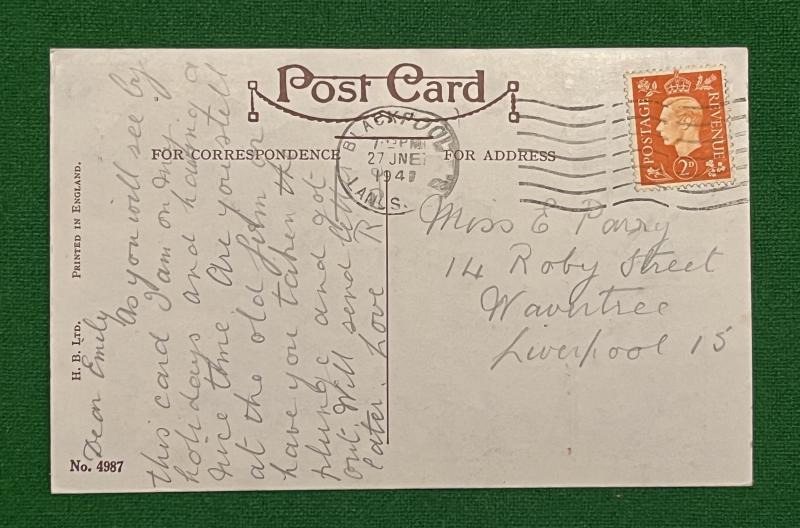 Post Card
FOR CORRESPONDENCE
FOR ADDRESS
BLACKPOOL
PM
27 JNE
194
LANCS.
POSTAGE
REVENUE
2D
Miss E Parry
14 Roby Street
Wavertree
Liverpool 15
Dear Emily
As you will see by
this card I am on my
holidays and having a
nice time. Are you still
at the old firm or
have you taken the
plunge and got
out. Will send letter
later. Love R
H. B. LTD. PRINTED IN ENGLAND.
No. 4987